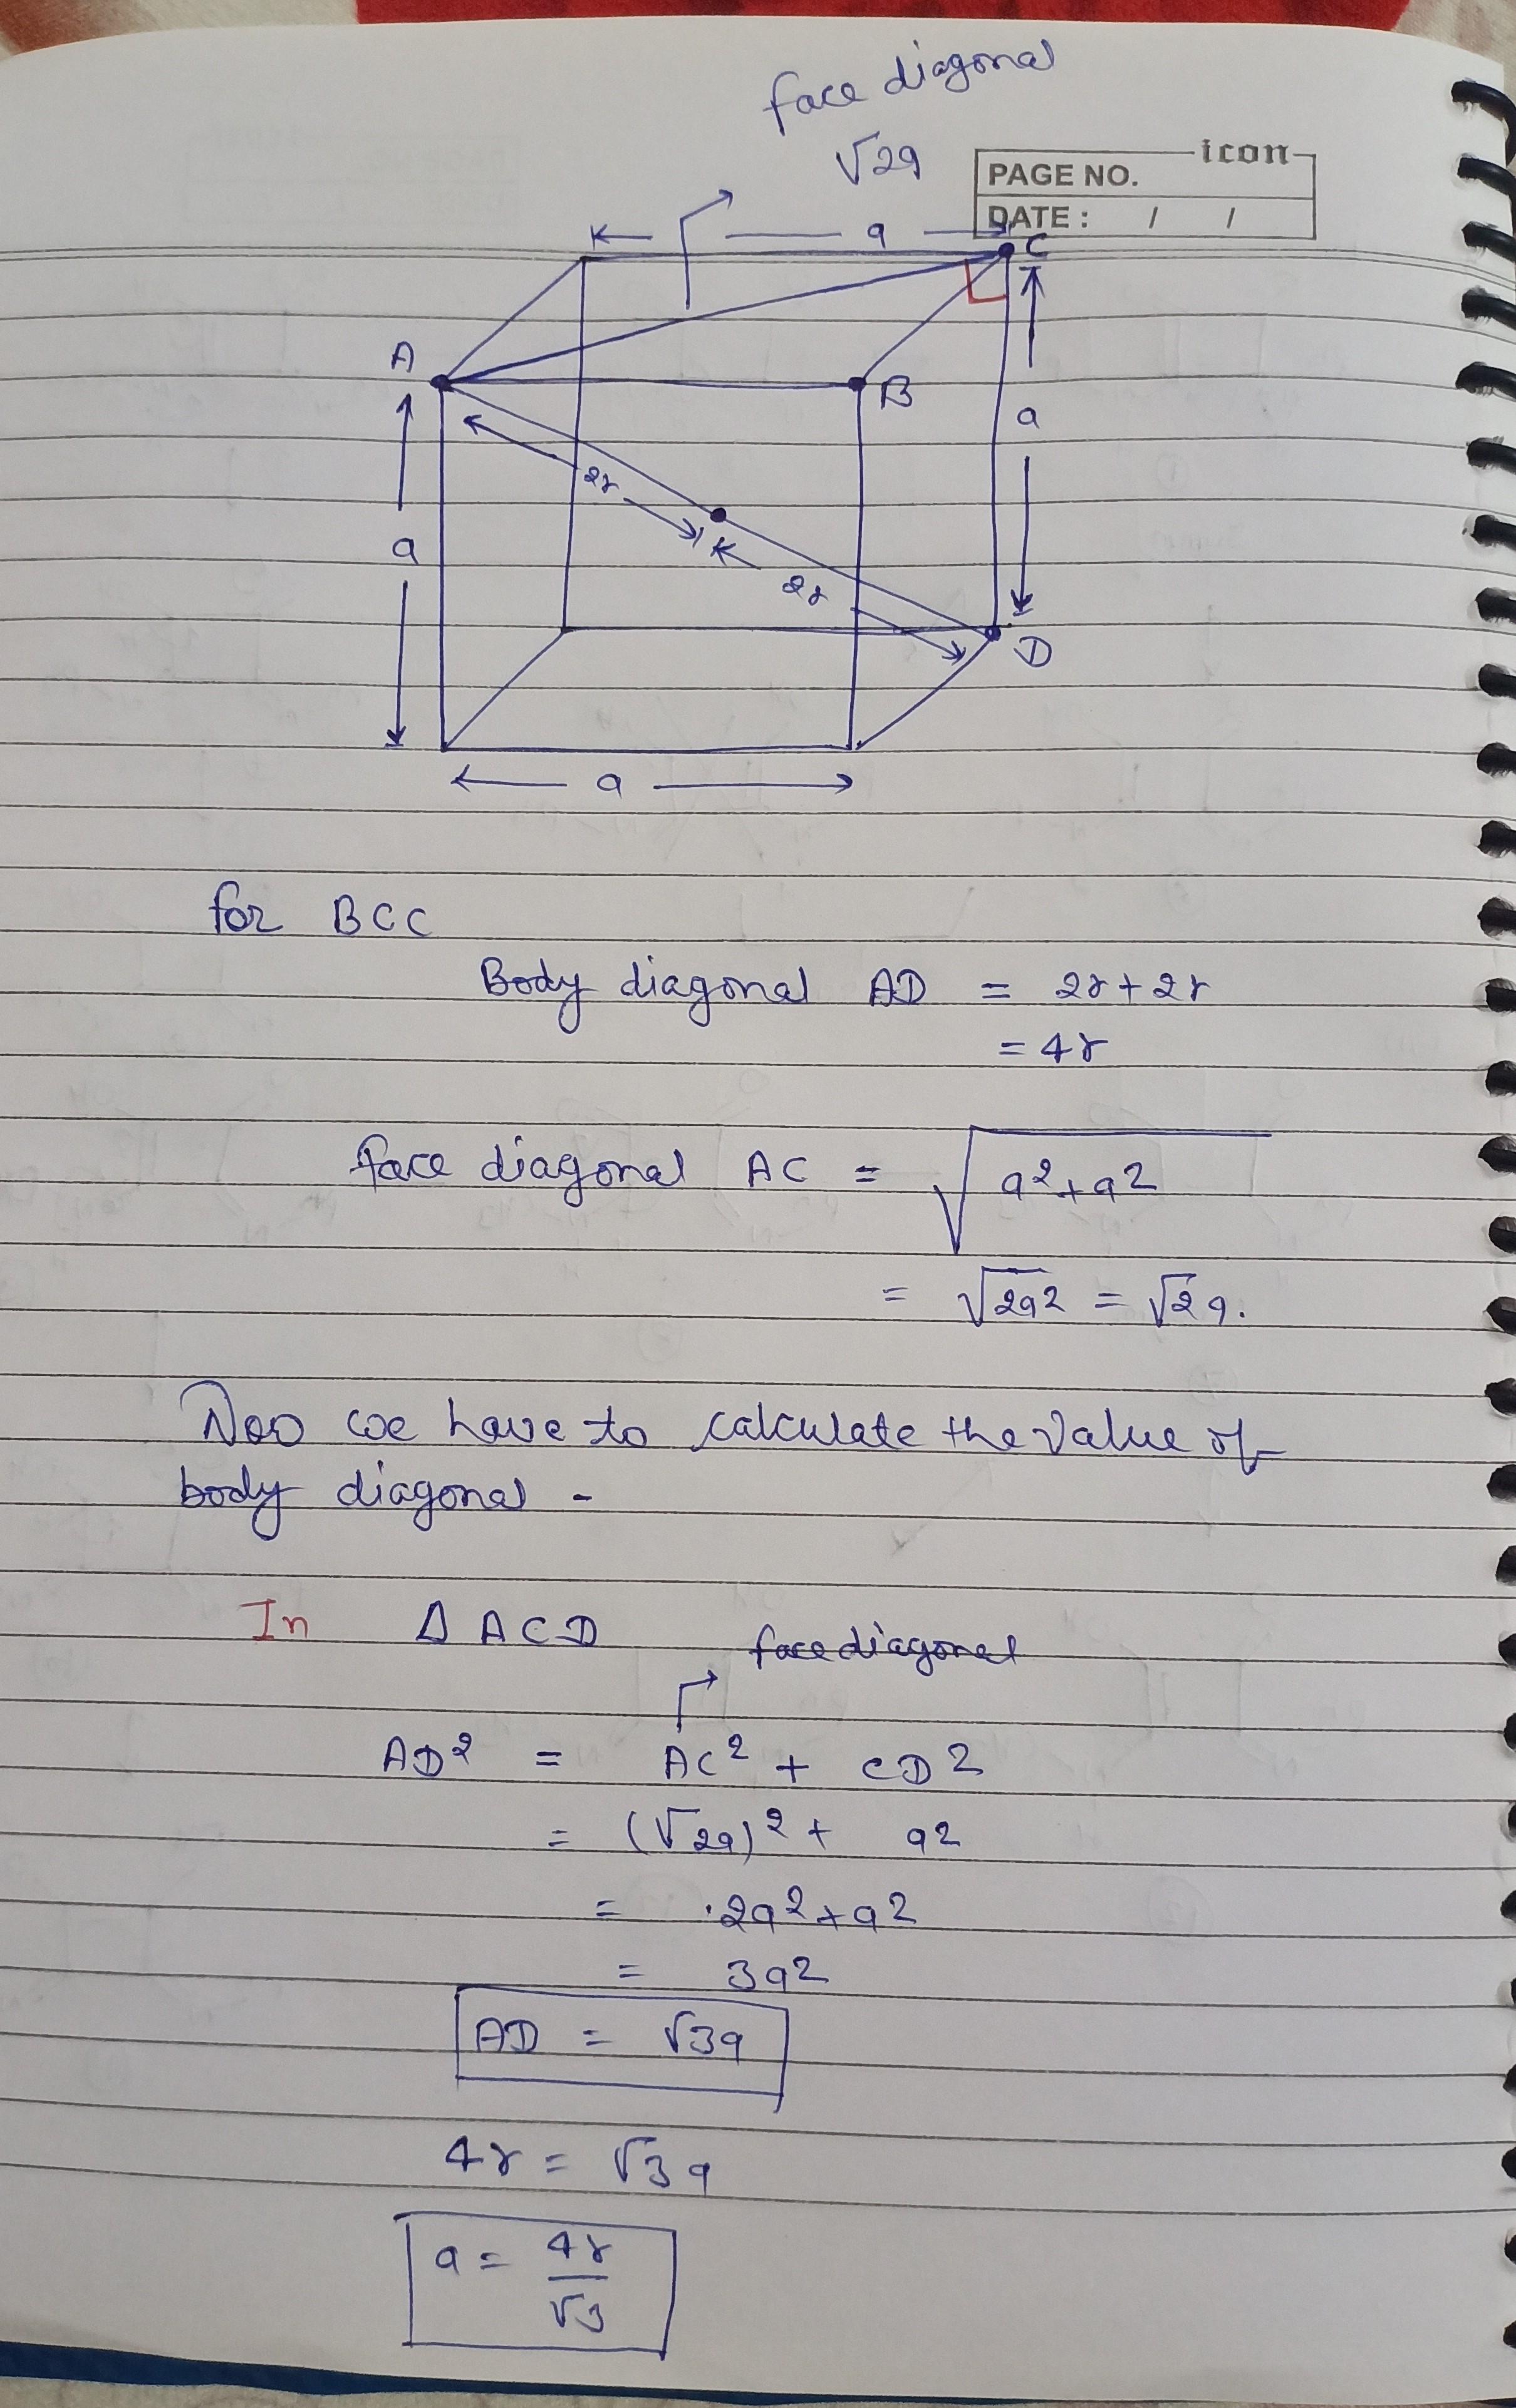 face diagonal
√2a
icon
PAGE NO.
DATE : / /
a
C
A
B
a
2r
a
2r
D
a
for BCC
Body diagonal AD = 2r + 2r
= 4r
face diagonal AC = √a² + a²
= √2a² = √2a.
Now we have to calculate the value of
body diagonal -
In Δ ACD
face diagonal
AD² = AC² + CD²
= (√2a)² + a²
= 2a² + a²
= 3a²
AD = √3a
4r = √3a
a = 4r/√3